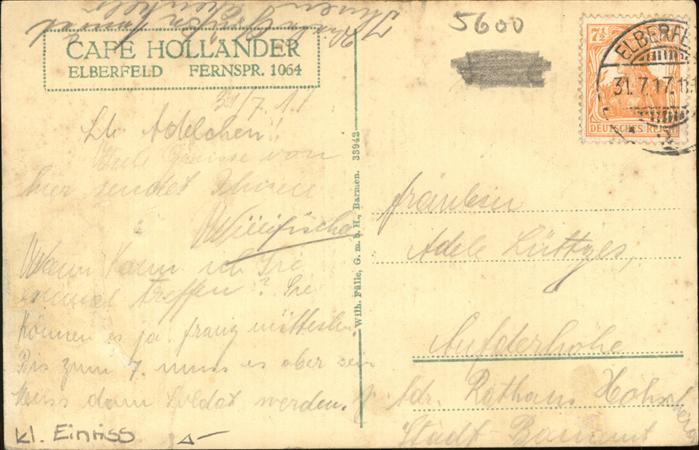 5600
CAFE HOLLÄNDER
ELBERFELD FERNSPR. 1064
7½
DEUTSCHES REICH
ELBERFE
31.7.17.11
31/7.17
Lb. Adelchen!!
Viele Grüsse von
hier sendet Ihnen
Willi
Wann kann ich Sie
einmal treffen? Sie
können es ja
Bis zum 7. muss es aber sein
muss dann Soldat werden.
Wilh. Fülle, G. m. b. H., Barmen. 33942
Fräulein
Adele Lüttges,
Aufderhöhe
Adr. Rathaus
Stadt-Bauamt
kl. Einriss